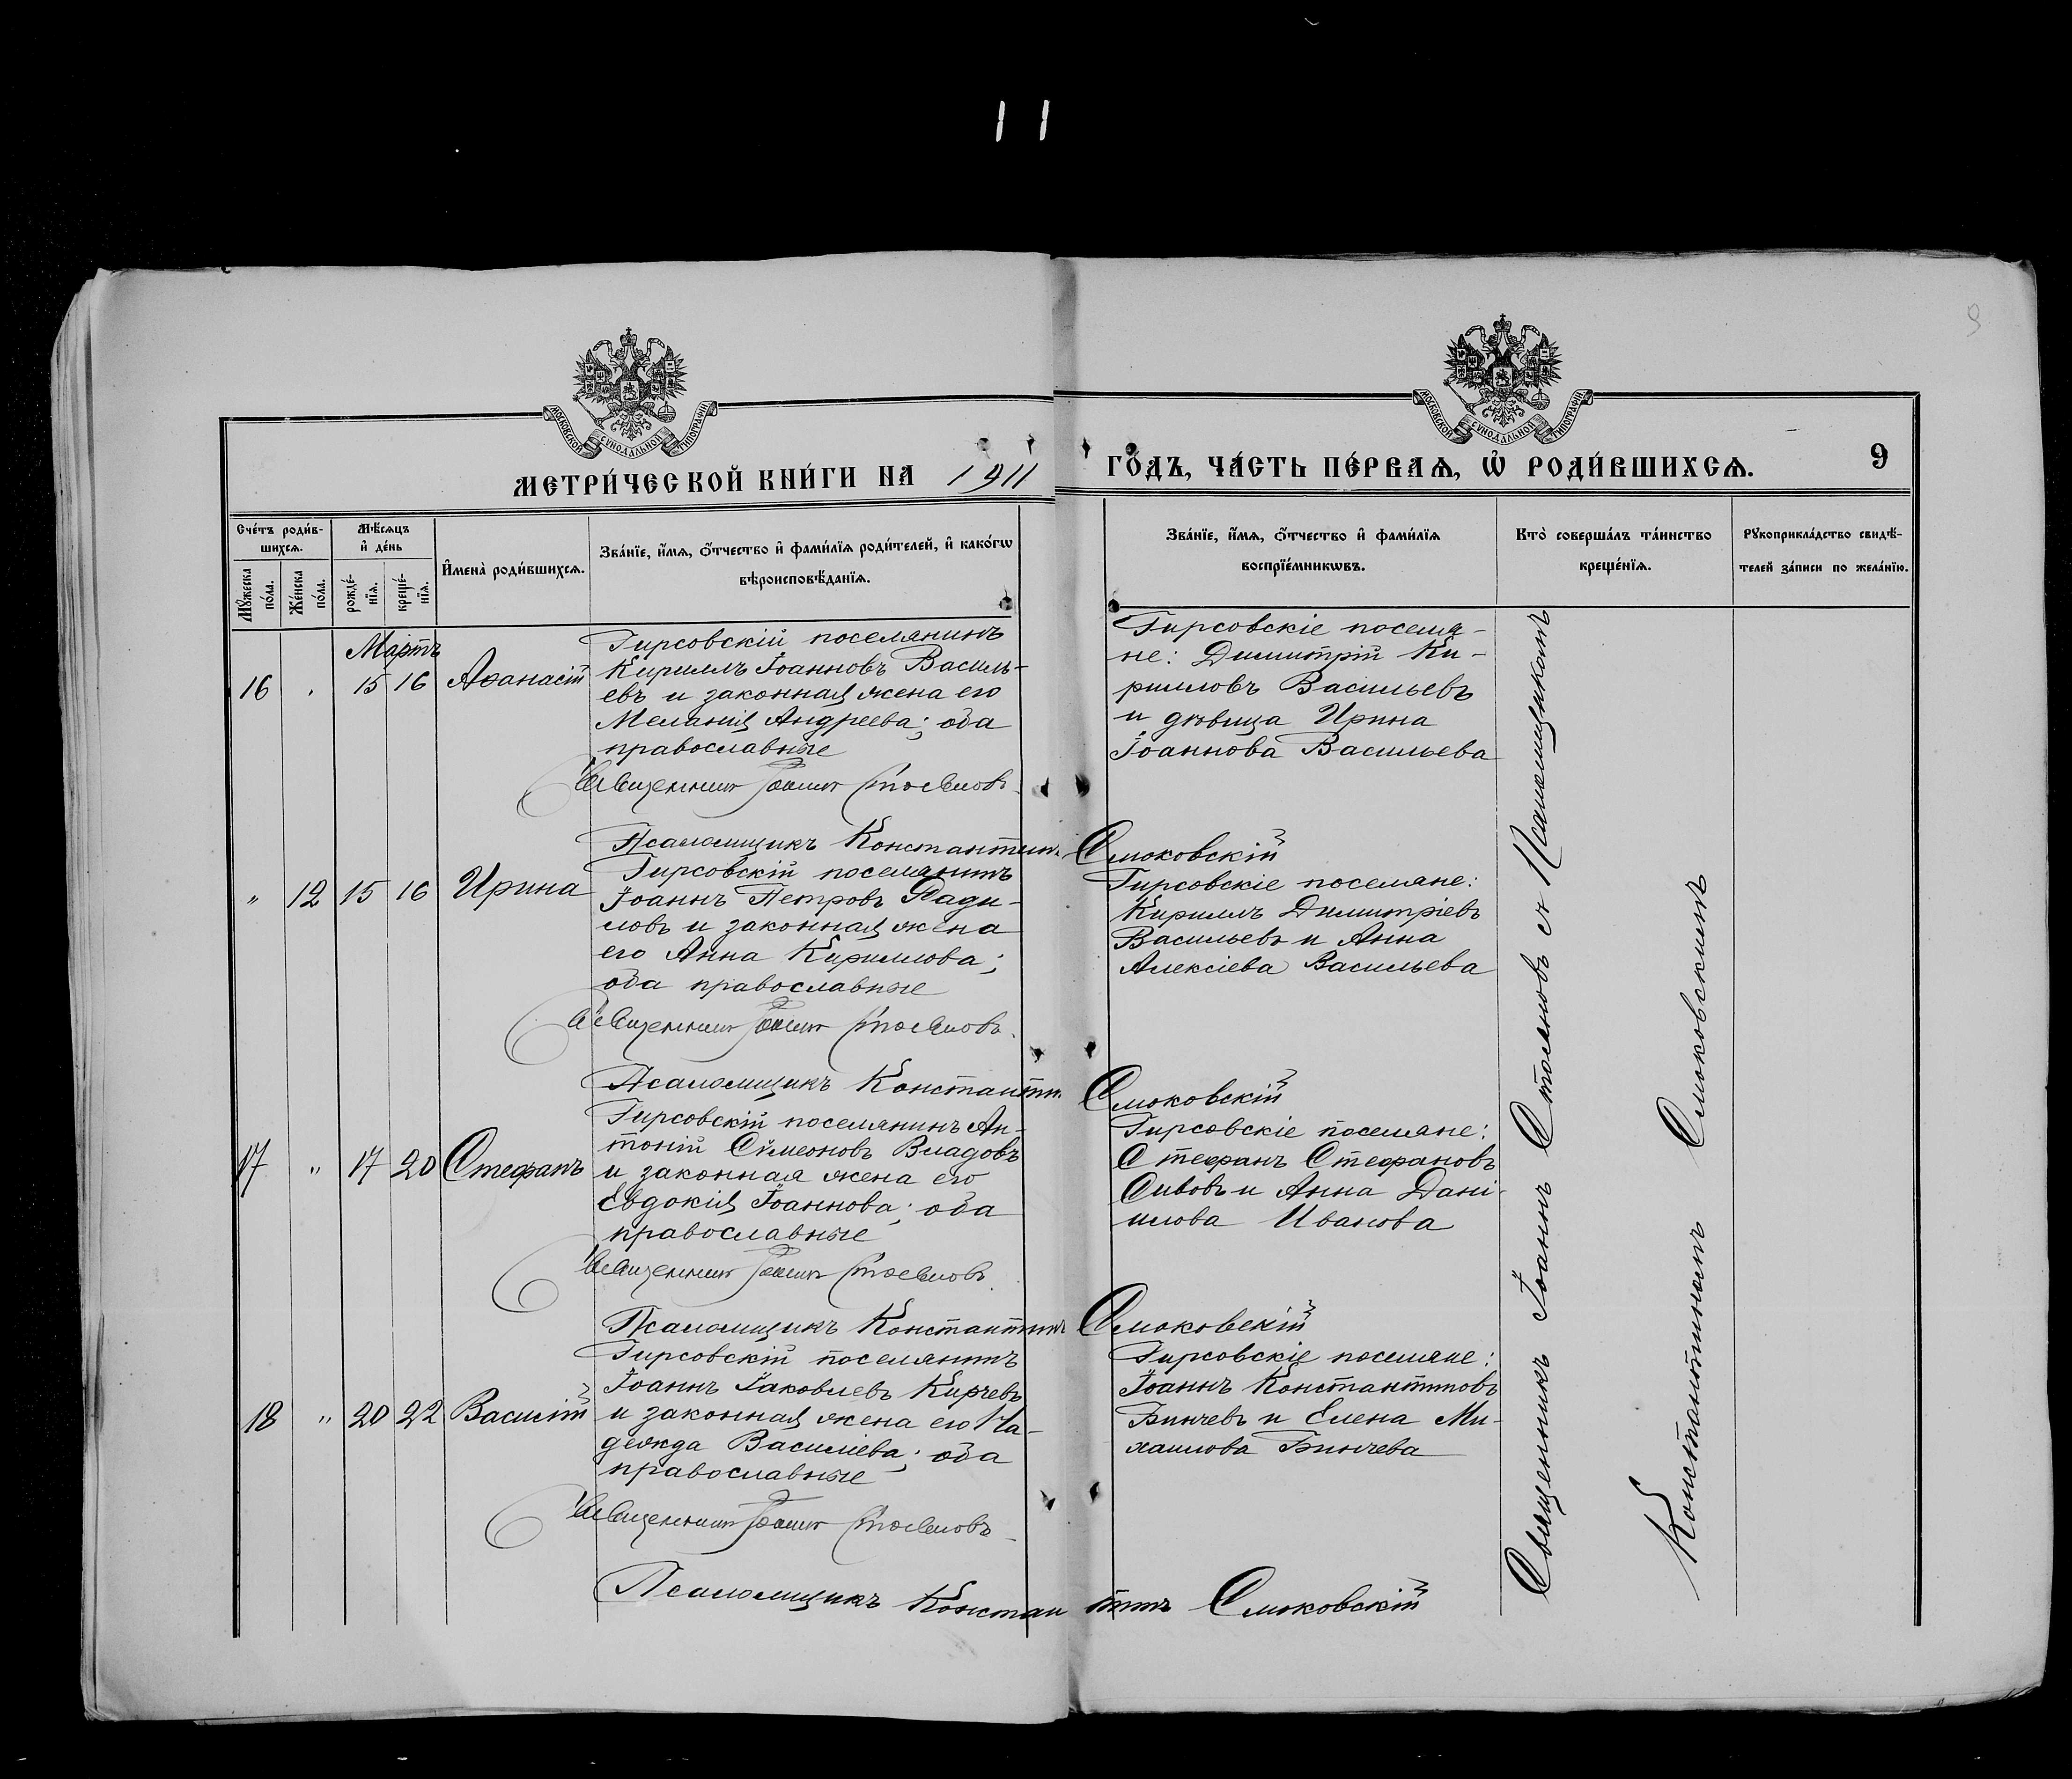 11
9
МОСКОВСКОЙ СѴНОДАЛЬНОЙ ТИПОГРАФІИ
МОСКОВСКОЙ СѴНОДАЛЬНОЙ ТИПОГРАФІИ
МЕТРИ́ЧЕСКОЙ КНИ́ГИ НА 1911
ГО́ДЪ, ЧА́СТЬ ПЕ́РВАѦ, Ѡ҆ РОДИ́ВШИХСѦ.
9
Сче́тъ роди́в-
шихсѧ.
Мꙋ́жеска
по́ла.
Же́нска
по́ла.
Мѣ́сѧцъ
и҆ де́нь
рожде́-
нїѧ.
креще́-
нїѧ.
И҆мена̀ роди́вшихсѧ.
Зва́нїе, и҆́мѧ, ѻ҆́тчество и҆ фами́лїѧ роди́телей, и҆ како́гѡ
вѣроисповѣ́данїѧ.
Зва́нїе, и҆́мѧ, ѻ҆́тчество и҆ фами́лїѧ
воспрїе́мникѡвъ.
Кто̀ соверша́лъ та́инство
креще́нїѧ.
Рꙋкоприкла́дство свидѣ́-
телей за́писи по жела́нїю.
Мартъ
16
15 16
Аѳанасій
Гирсовскій поселянинъ
Кириллъ Іоанновъ Василь-
евъ и законная жена его
Меланія Андреева; оба
православные
Священникъ Іоаннъ Стояновъ
Псаломщикъ Константинъ Смоковскій
Гирсовскіе поселя-
не: Димитрій Ки-
рилловъ Васильевъ
и дѣвица Ирина
Іоаннова Васильева
„ 12 15 16
Ирина
Гирсовскій поселянинъ
Іоаннъ Петровъ Ради-
ловъ и законная жена
его Анна Кириллова;
оба православные
Священникъ Іоаннъ Стояновъ
Псаломщикъ Константинъ Смоковскій
Гирсовскіе поселяне:
Кириллъ Димитріевъ
Васильевъ и Анна
Алексіева Васильева
17 „ 17 20
Стефанъ
Гирсовскій поселянинъ Ан-
тоній Сѵмеоновъ Владовъ
и законная жена его
Евдокія Іоаннова; оба
православные
Священникъ Іоаннъ Стояновъ
Псаломщикъ Константинъ Смоковскій
Гирсовскіе поселяне:
Стефанъ Стефановъ
Сивовъ и Анна Дані-
илова Иванова
18 „ 20 22
Василій
Гирсовскій поселянинъ
Іоаннъ Іаковлевъ Кирчевъ
и законная жена его На-
дежда Василіева; оба
православные
Священникъ Іоаннъ Стояновъ
Псаломщикъ Константинъ Смоковскій
Гирсовскіе поселяне:
Іоаннъ Константиновъ
Бинчевъ и Елена Ми-
хаилова Бинчева
Священникъ Іоаннъ Стояновъ съ Псаломщикомъ
Константиномъ Смоковскимъ